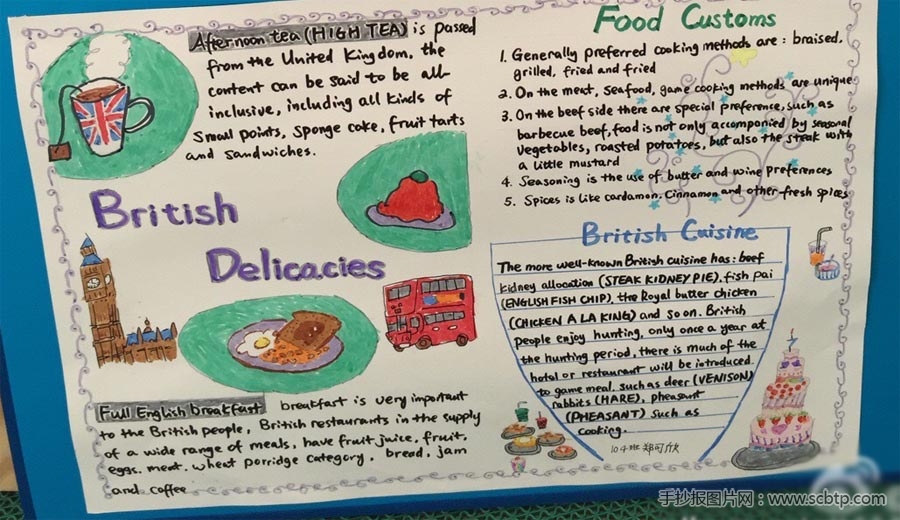 Afternoon tea (HIGH TEA) is passed
from the United Kingdom, the
content can be said to be all-
inclusive, including all kinds of
small points, sponge cake, fruit tarts
and sandwiches.
British
Delicacies
Full English breakfast breakfast is very important
to the British people, British restaurants in the supply
of a wide range of meals, have fruit juice, fruit,
eggs, meat, wheat porridge category, bread, jam
and coffee
Food Customs
1. Generally preferred cooking methods are : braised,
grilled, fried and fried
2. On the meat, seafood, game cooking methods are unique
3. On the beef side there are special preference, such as
barbecue beef, food is not only accompanied by seasonal
vegetables, roasted potatoes, but also the steak with
a little mustard
4. Seasoning is the use of butter and wine preferences
5. Spices is like cardamon, cinnamon and other fresh spices
British Cuisine
The more well-known British cuisine has : beef
kidney allocation (STEAK KIDNEY PIE), fish pai
(ENGLISH FISH CHIP), the Royal butter chicken
(CHICKEN A LA KING) and so on. British
people enjoy hunting, only once a year at
the hunting period, there is much of the
hotal or restaurant will be introduced
to game meal, such as deer (VENISON)
rabbits (HARE), pheasant
(PHEASANT) such as
cooking.
10.4班 郑可欣
手抄报图片网：www.scbtp.com